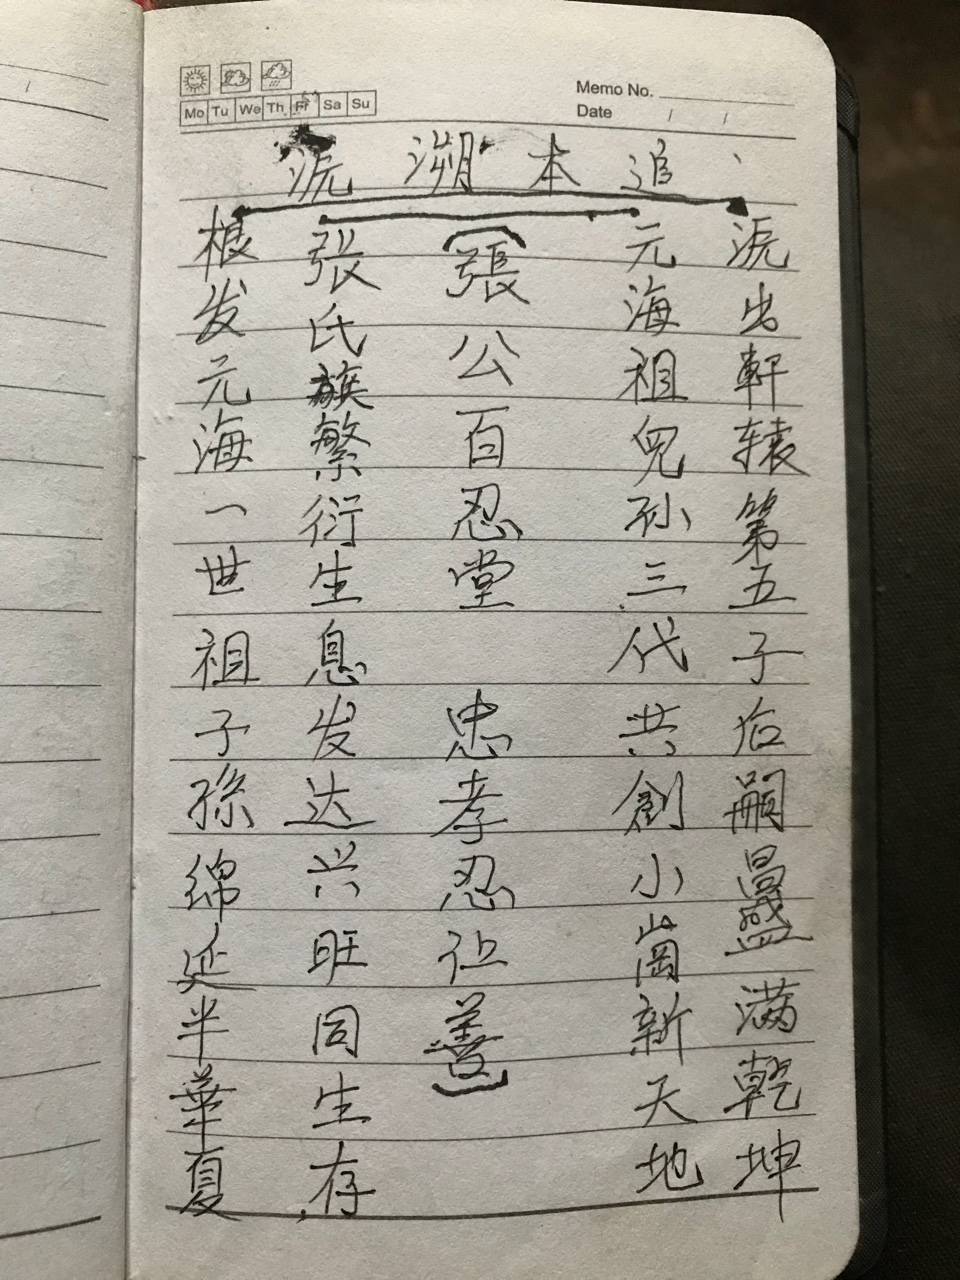 Mo Tu We Th Fr Sa Su
Memo No.
Date / /
追本溯源
源出軒辕第五子后嗣昌盛满乾坤
元海祖兒孙三代共創小崗新天地
(張公百忍堂 忠孝忍让)
张氏族繁衍生息发达兴旺同生存
根发元海一世祖子孫绵延半華夏